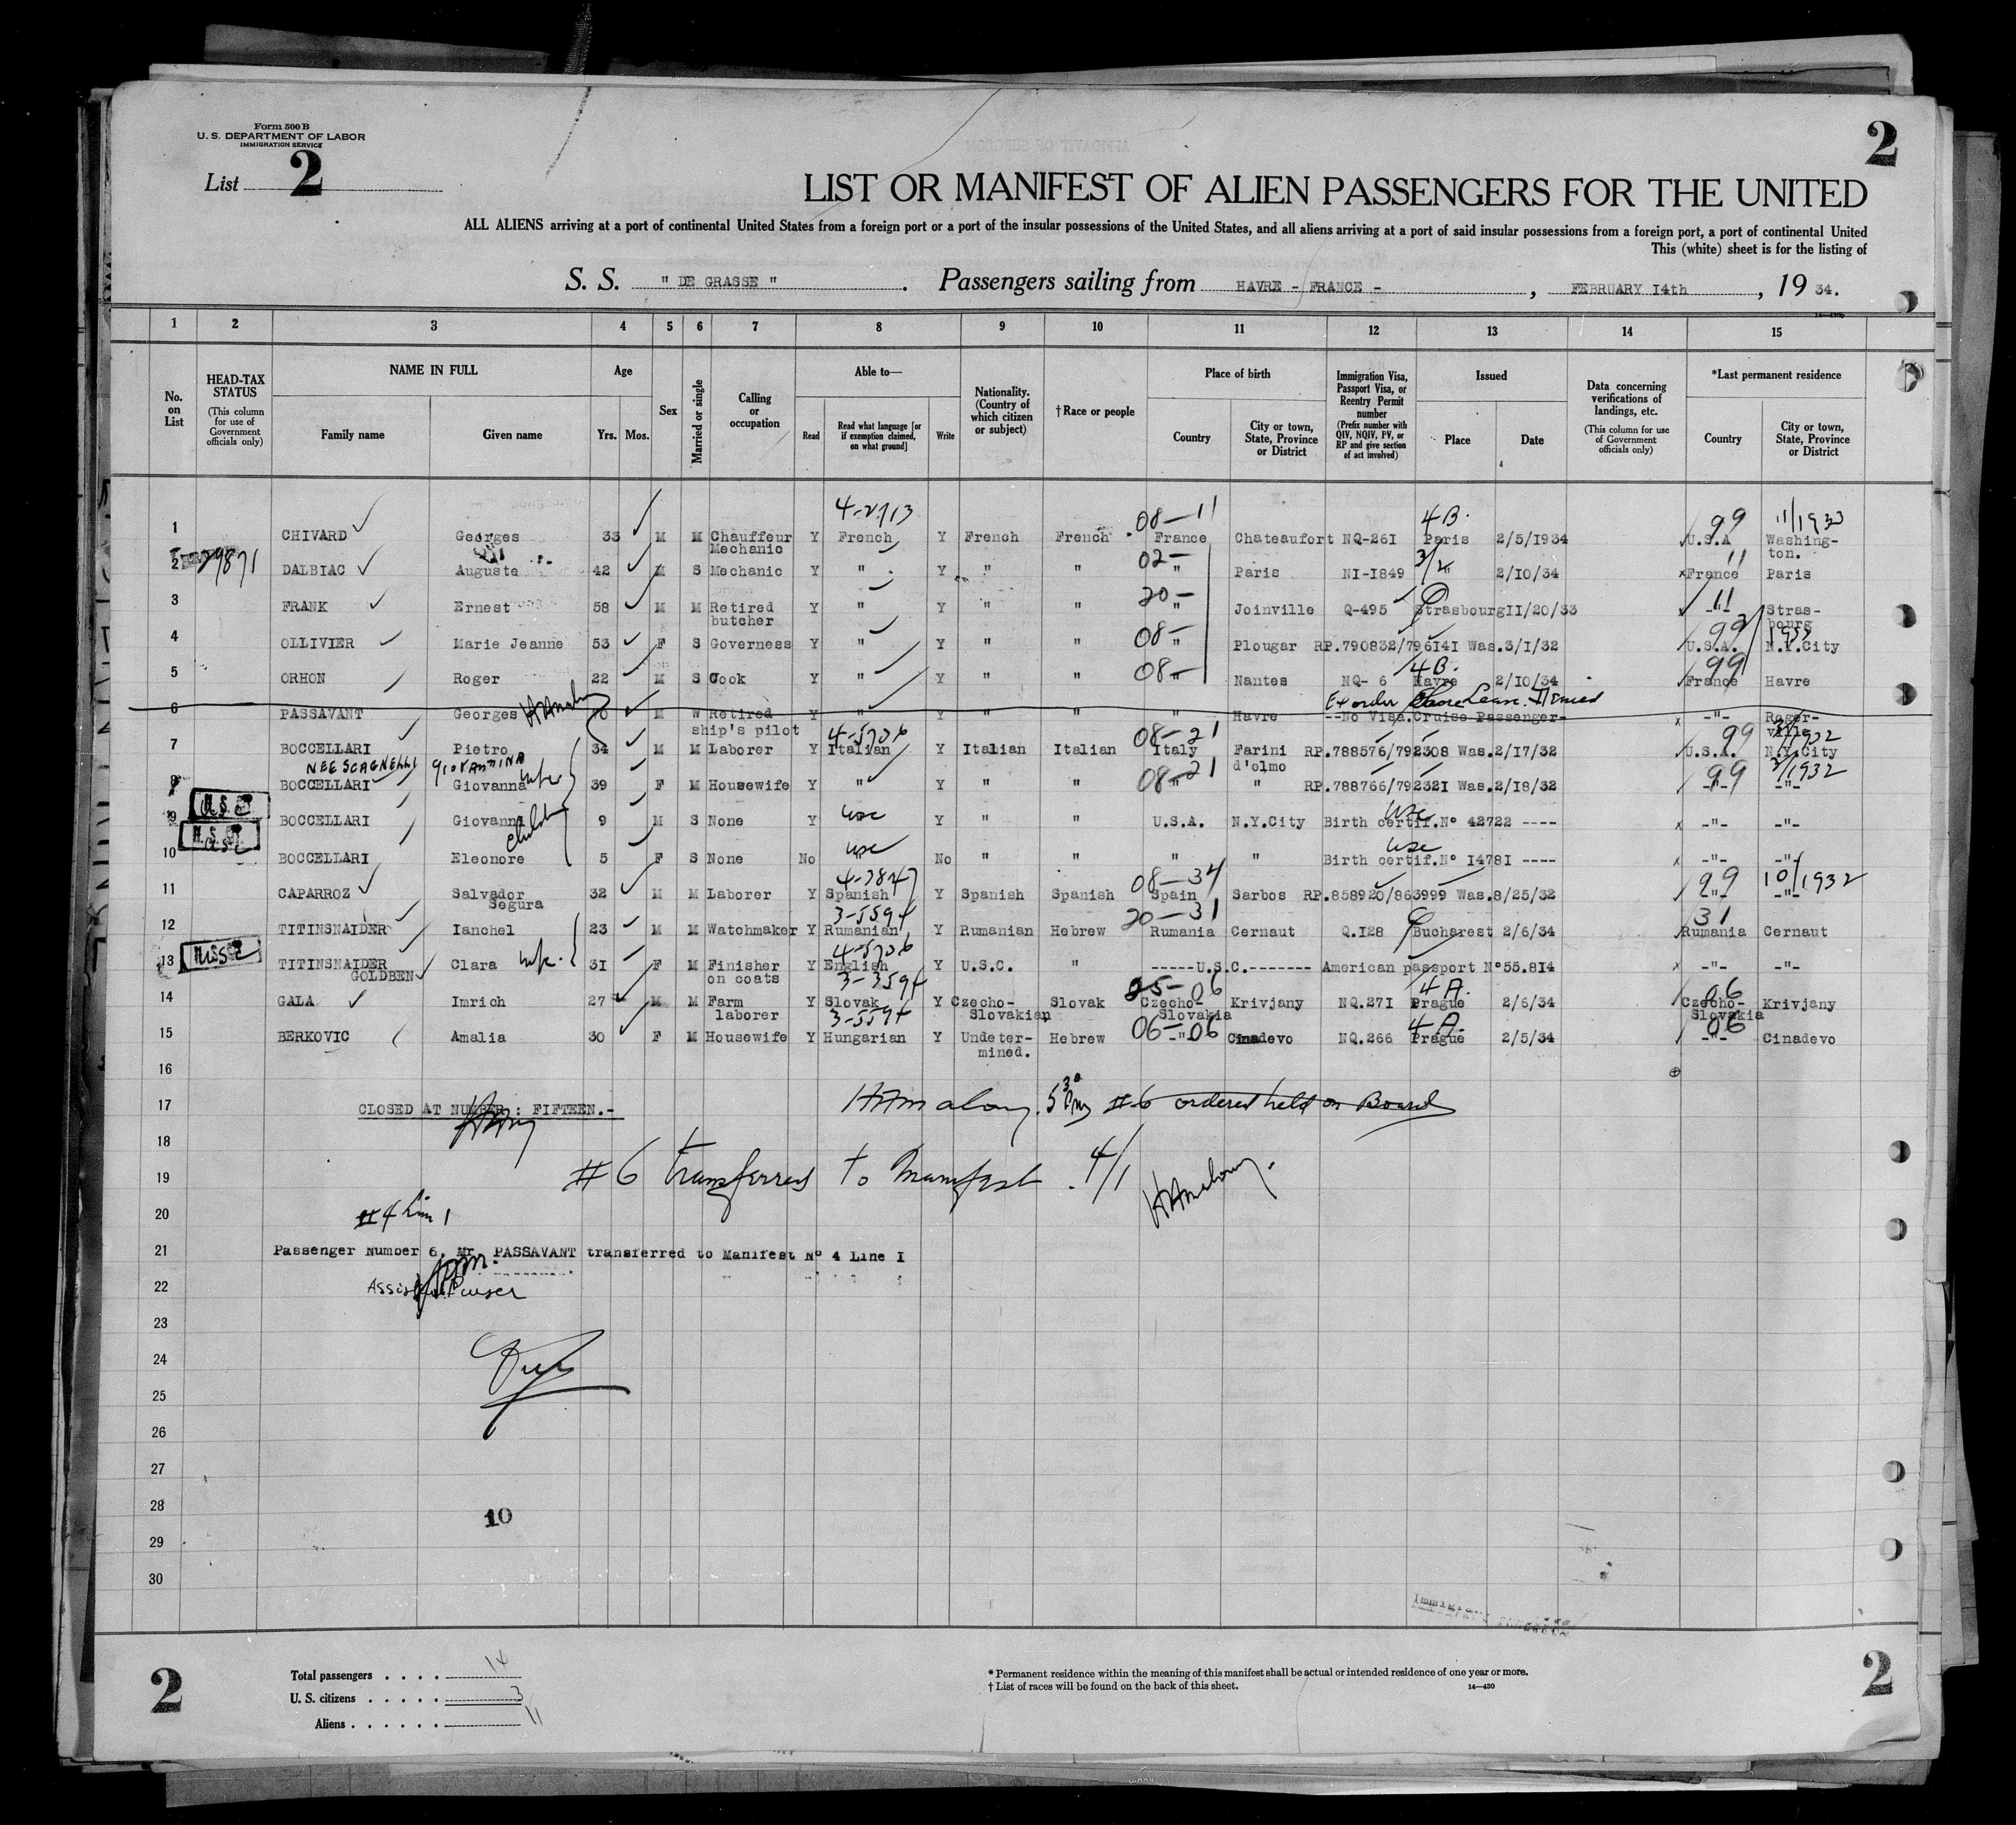 Form 500 B
U. S. DEPARTMENT OF LABOR
IMMIGRATION SERVICE
List 2
2
LIST OR MANIFEST OF ALIEN PASSENGERS FOR THE UNITED
ALL ALIENS arriving at a port of continental United States from a foreign port or a port of the insular possessions of the United States, and all aliens arriving at a port of said insular possessions from a foreign port, a port of continental United
This (white) sheet is for the listing of
S. S. " DE GRASSE " . Passengers sailing from HAVRE - FRANCE - , FEBRUARY I4th , 19 34.
1 2 3 4 5 6 7 8 9 10 11 12 13 14 15
No. on List
HEAD-TAX STATUS (This column for use of Government officials only)
NAME IN FULL
Family name Given name
Age
Yrs. Mos.
Sex
Married or single
Calling or occupation
Able to—
Read Read what language [or if exemption claimed, on what ground] Write
Nationality. (Country of which citizen or subject)
† Race or people
Place of birth
Country City or town, State, Province or District
Immigration Visa, Passport Visa, or Reentry Permit number (Prefix number with QIV, NQIV, PV, or RP and give section of act involved)
Issued
Place Date
Data concerning verifications of landings, etc. (This column for use of Government officials only)
*Last permanent residence
Country City or town, State, Province or District
4-2713 08-11 4B. 99 11/1933
1 CHIVARD Georges 33 M M Chauffeur Mechanic Y French Y French French France Chateaufort NQ-26I Paris 2/5/1934 U.S.A Washing-ton.
29871 02- 3/2 11
2 DALBIAC Auguste 42 M S Mechanic Y " Y " " " Paris NI-I849 " 2/10/34 France Paris
20- 11
3 FRANK Ernest 58 M M Retired butcher Y " Y " " " Joinville Q-495 Strasbourg II/20/33 -"- Stras-bourg
08- 99
4 OLLIVIER Marie Jeanne 53 F S Governess Y " Y " " " Plougar RP.790832/796I4I Was.3/1/32 U.S.A. N.Y.City
08- 4B. 99
5 ORHON Roger 22 M S Cook Y " Y " " " Nantes NQ- 6 Havre 2/10/34 France Havre
6 PASSAVANT Georges 70 M W Retired ship's pilot Y " Y " " " Havre --No Visa.Cruise Passenger- -"- Roger-ville
4-5706 08-21 99
7 BOCCELLARI Pietro 34 M M Laborer Y Italian Y Italian Italian Italy Farini d'olmo RP.788576/792308 Was.2/17/32 U.S.A. N.Y.City
NEE SCAGNELLI GIOVANNINA wife 08-21 99 3/1932
8 BOCCELLARI Giovanna 39 F M Housewife Y " Y " " " " RP.788766/79232I Was.2/18/32 -"- -"-
USC usc usc
9 BOCCELLARI Giovanna 9 M S None Y Y " " U.S.A. N.Y.City Birth certif.N° 42722 ---- -"- -"-
children
usc usc
10 BOCCELLARI Eleonore 5 F S None No " No " " " " Birth certif.N° I478I ---- -"- -"-
4-3847 08-34 99 10/1932
11 CAPARROZ Salvador Segura 32 M M Laborer Y Spanish Y Spanish Spanish Spain Sarbos RP.858920/863999 Was.8/25/32 -"- -"-
3-5594 20-31 31
12 TITINSNAIDER Ianchel 23 M M Watchmaker Y Rumanian Y Rumanian Hebrew Rumania Cernaut Q.I28 Bucharest 2/6/34 Rumania Cernaut
4-5706
13 TITINSNAIDER GOLDBEN Clara wife 3I F M Finisher on coats Y English Y U.S.C. " -----U.S.C.-------- American passport N°55.8I4 -"- -"-
3-3594 25-06 4A. 06
14 GALA Imrich 27 M M Farm laborer Y Slovak Y Czecho-Slovakian Slovak Czecho-Slovakia Krivjany NQ.27I Prague 2/6/34 Czecho-Slovakia Krivjany
3-5594 06-06 4A. 06
15 BERKOVIC Amalia 30 F M Housewife Y Hungarian Y Undeter-mined. Hebrew -"- Cinadevo NQ.266 Prague 2/5/34 -"- Cinadevo
16
17 CLOSED AT NUMBER : FIFTEEN.- #6 ordered held on Board
18
19 #6 transferred to Manifest . 4/1
20 #4 Line 1
21 Passenger Number 6, Mr. PASSAVANT transferred to Manifest N° 4 Line I
22 Assistant Purser
23
24
25
26
27
28 10
29
30
2
Total passengers . . . . 14
U. S. citizens . . . . . 3
Aliens . . . . . . 11
* Permanent residence within the meaning of this manifest shall be actual or intended residence of one year or more.
† List of races will be found on the back of this sheet. 14—430
2